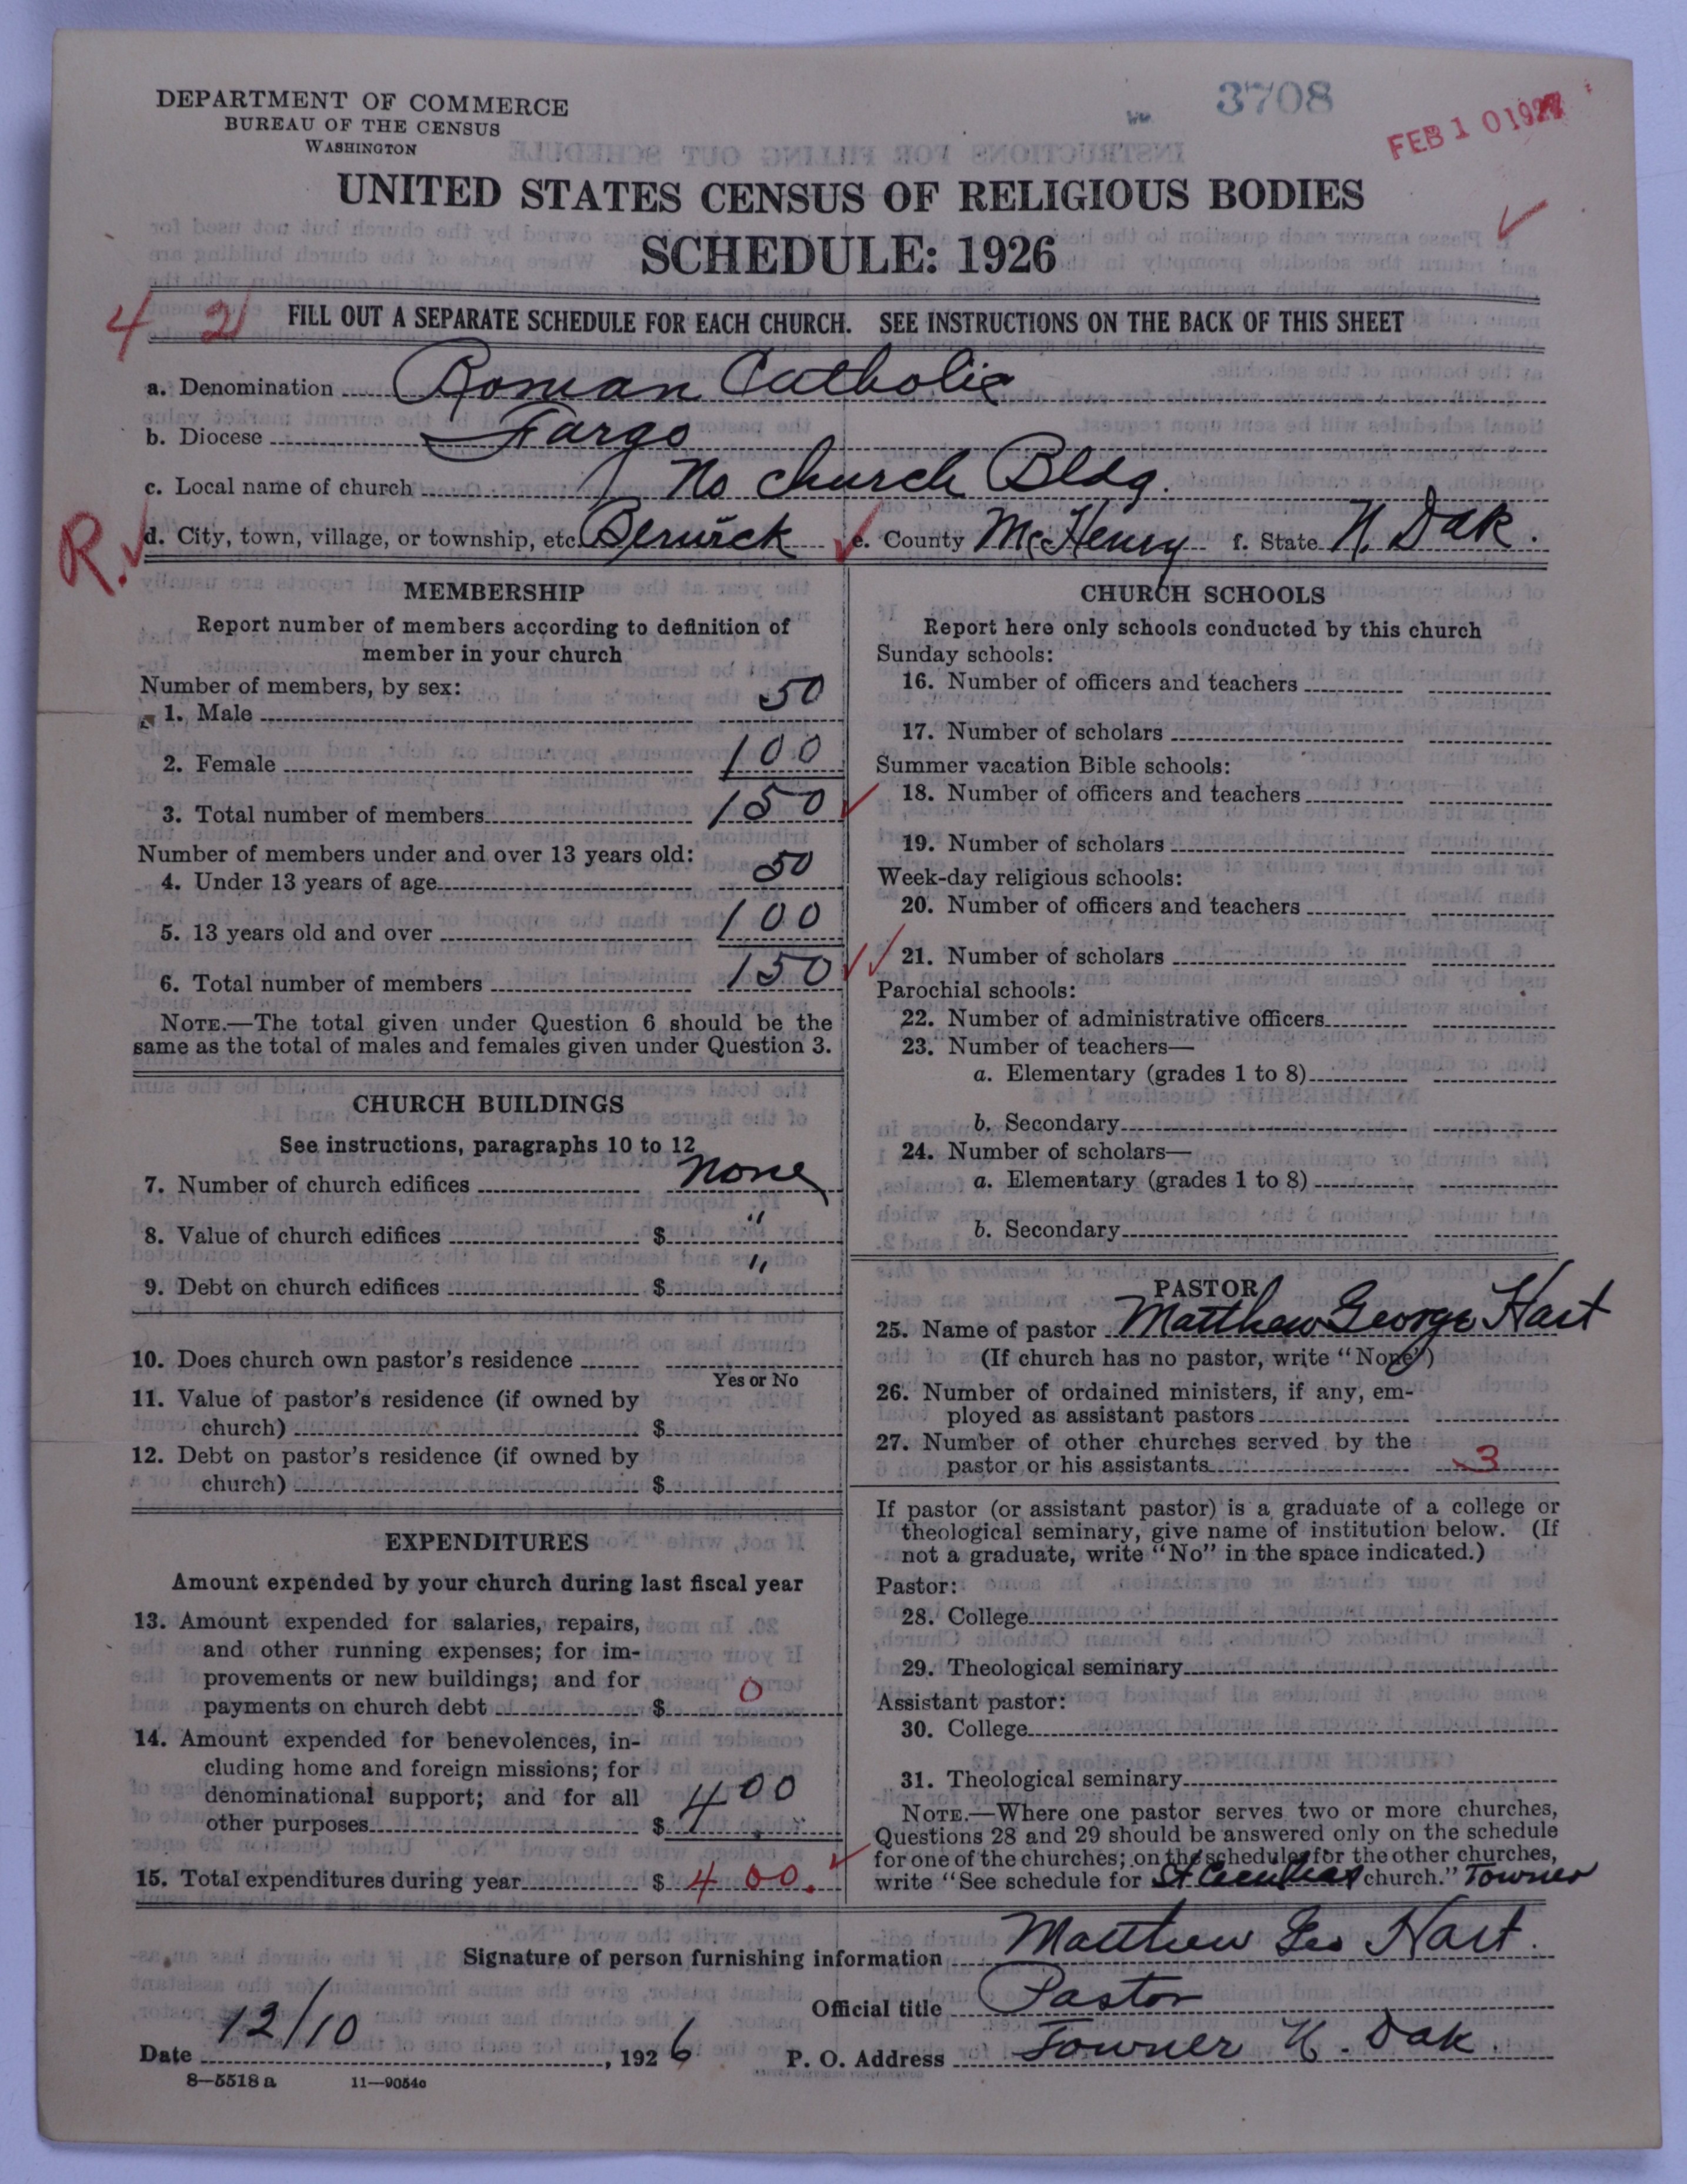 DEPARTMENT OF COMMERCE
BUREAU OF THE CENSUS
WASHINGTON
3708
FEB 10 1927
UNITED STATES CENSUS OF RELIGIOUS BODIES
SCHEDULE: 1926
4 2
FILL OUT A SEPARATE SCHEDULE FOR EACH CHURCH. SEE INSTRUCTIONS ON THE BACK OF THIS SHEET
a. Denomination Roman Catholic
b. Diocese Fargo
c. Local name of church No church Bldg.
R. d. City, town, village, or township, etc. Berwick e. County McHenry f. State N. Dak.
MEMBERSHIP
Report number of members according to definition of
member in your church
Number of members, by sex:
1. Male 50
2. Female 100
3. Total number of members 150
Number of members under and over 13 years old:
4. Under 13 years of age 50
5. 13 years old and over 100
6. Total number of members 150
NOTE.—The total given under Question 6 should be the
same as the total of males and females given under Question 3.
CHURCH BUILDINGS
See instructions, paragraphs 10 to 12
7. Number of church edifices none
8. Value of church edifices $ "
9. Debt on church edifices $ "
10. Does church own pastor's residence
Yes or No
11. Value of pastor's residence (if owned by
church) $
12. Debt on pastor's residence (if owned by
church) $
EXPENDITURES
Amount expended by your church during last fiscal year
13. Amount expended for salaries, repairs,
and other running expenses; for im-
provements or new buildings; and for
payments on church debt $ 0
14. Amount expended for benevolences, in-
cluding home and foreign missions; for
denominational support; and for all
other purposes $ 400
15. Total expenditures during year $ 400.
CHURCH SCHOOLS
Report here only schools conducted by this church
Sunday schools:
16. Number of officers and teachers
17. Number of scholars
Summer vacation Bible schools:
18. Number of officers and teachers
19. Number of scholars
Week-day religious schools:
20. Number of officers and teachers
21. Number of scholars
Parochial schools:
22. Number of administrative officers
23. Number of teachers—
a. Elementary (grades 1 to 8)
b. Secondary
24. Number of scholars—
a. Elementary (grades 1 to 8)
b. Secondary
PASTOR
25. Name of pastor Matthew George Hart
(If church has no pastor, write "None")
26. Number of ordained ministers, if any, em-
ployed as assistant pastors
27. Number of other churches served by the
pastor or his assistants 3
If pastor (or assistant pastor) is a graduate of a college or
theological seminary, give name of institution below. (If
not a graduate, write "No" in the space indicated.)
Pastor:
28. College
29. Theological seminary
Assistant pastor:
30. College
31. Theological seminary
NOTE.—Where one pastor serves two or more churches,
Questions 28 and 29 should be answered only on the schedule
for one of the churches; on the schedules for the other churches,
write "See schedule for St church." Towner
Signature of person furnishing information Matthew Geo Hart.
Official title Pastor
Date 12/10, 1926 P. O. Address Towner N. Dak.
8—5518 a 11—9054c